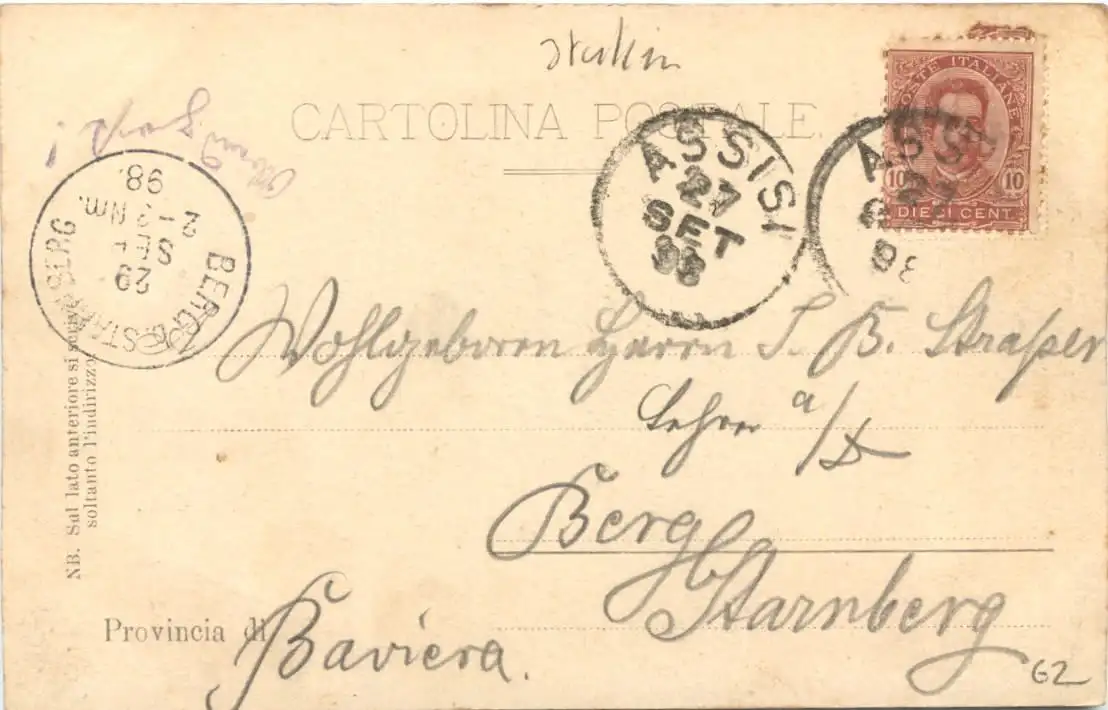 Italien
CARTOLINA POSTALE.
POSTE ITALIANE
10 10
DIECI CENT.
ASSISI
27
SET
98
ASSISI
27
SET
98
BERG b/STARNBERG
29
SEPT
2-3 Nm.
98.
Wohlgeboren Herrn J. B. Straßer
Lehrer a/D
Berg b/
Starnberg
Provincia di Baviera.
NB. Sul lato anteriore si scrive
soltanto l'indirizzo
62